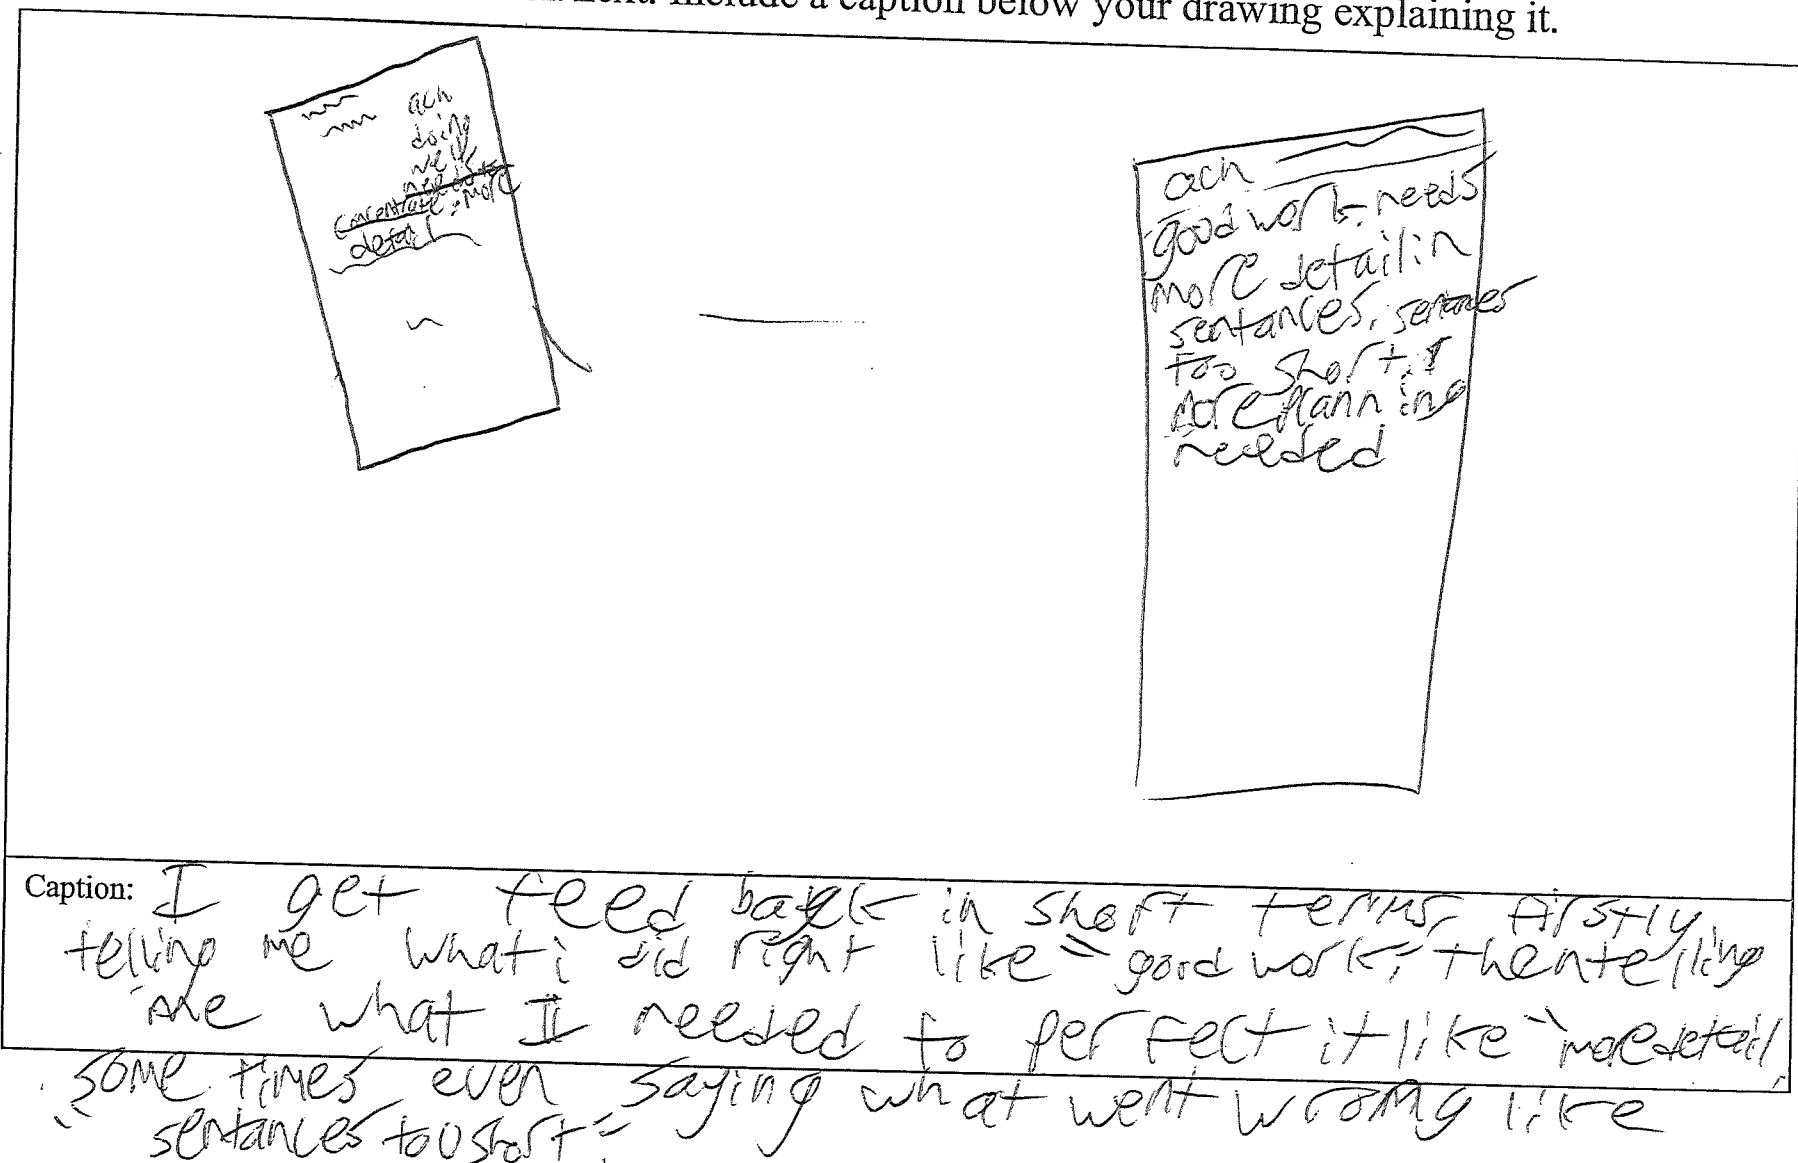 Include a caption below your drawing explaining it.
ach
doing
well
needs to
concentrate, more
detail
ach
good work, needs
more detail in
sentances, sentances
too short,
more plann ing
needed
Caption: I get feed back in short terms, firstly,
telling me what i did right like "good work", then telling
me what I needed to perfect it like "more detail,
some times even saying what went wrong like
"sentances too short"